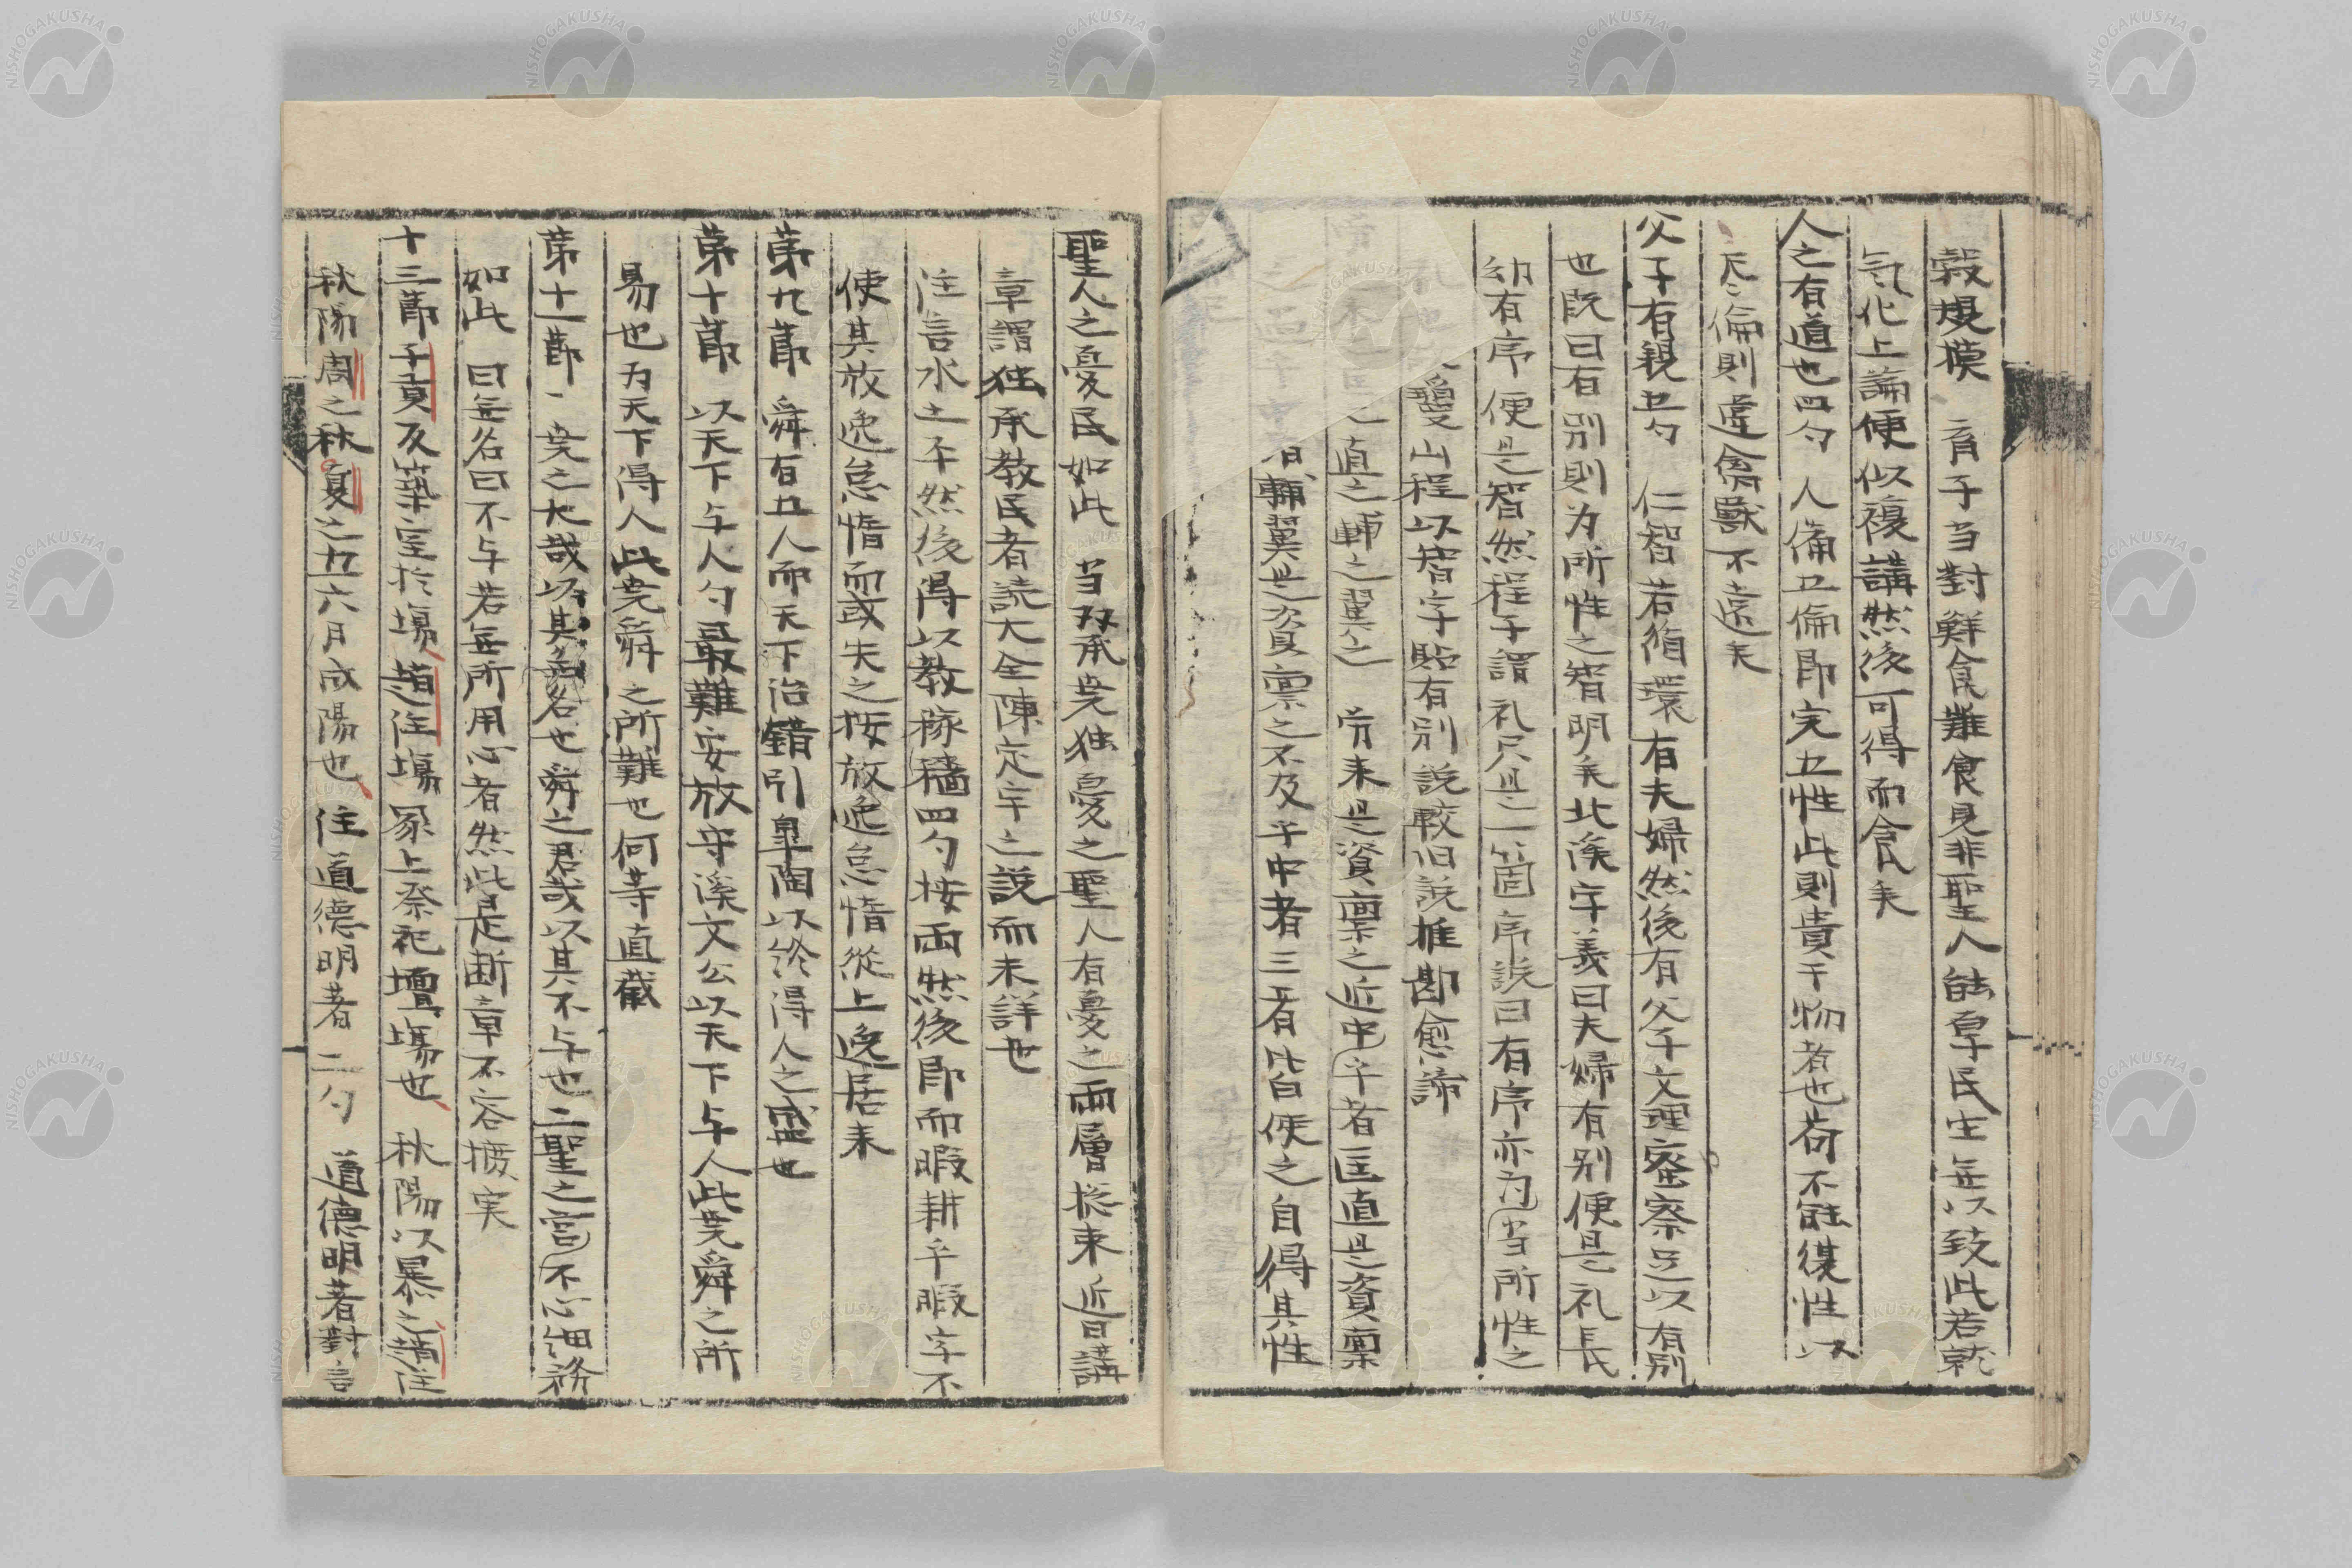 穀規模 育子当對鮮食難食見非聖人能皐民生無以致此若就
気化上論便似複講然後可得而食矣
人之有道也四勺 人備五倫即完五性此則貴于物者也苟不能復性以
尽倫則違禽獣不遠矣
父子有親五勺 仁智若循環有夫婦然後有父子文理密察足以有別
也既曰有別則为所性之智明矣北溪字義曰夫婦有别便是礼長
幼有序便是智然程子謂礼只是一箇序説曰有序亦为当所性之
雙山程以智字貼有別説較旧説推勘愈諦
直之輔之翼之 労来是資稟之近中乎者匡直是資稟
輔翼是資稟之不及乎中者三者皆使之自得其性
聖人之憂民如此 当双承尭独憂之聖人有憂之両層捴束近日講
章謂独承教民者読大全陳定宇之説而未詳也
注言水土平然後得以教稼穡四勺按両然後即而暇耕乎暇字不
使其放逸怠惰而或失之按放逸怠惰從上逸居来
第九節 舜有五人而天下治錯引皐陶以終得人之盛也
第十節 以天下与人勺最難安放守溪文公以天下与人此尭舜之所
易也为天下得人此尭舜之所難也何等直截
第十一節 尭之大哉以其無名也舜之君哉以其不与也二聖之言不心細務
如此 曰無名曰不与若無所用心者然此是断章不容摭実
十三節子貢反築室於場趙注場冢上祭祀壇場也 秋陽以暴之趙注
秋陽周之秋夏之五六月成陽也 住道徳明著二勺 道徳明著對言
NISHOGAKUSHA